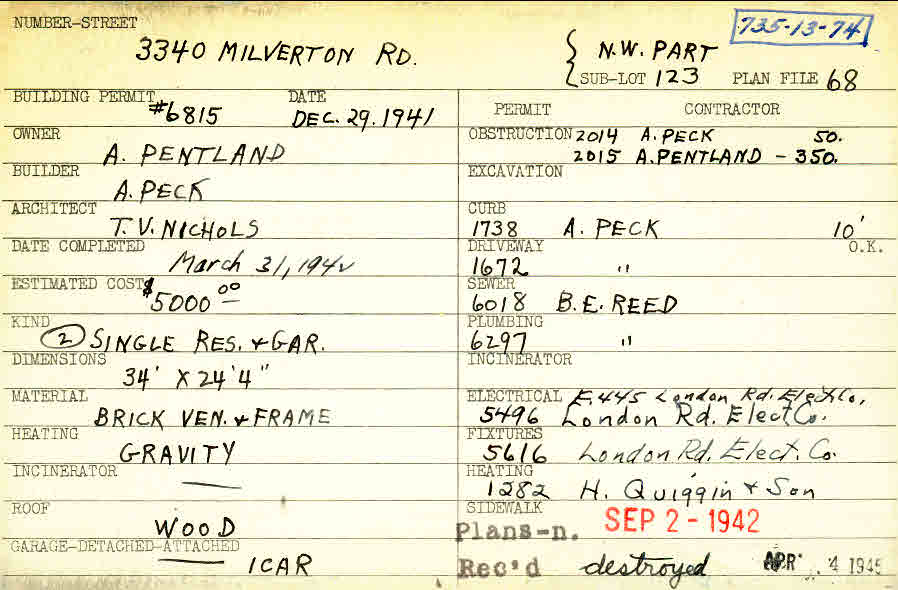 NUMBER-STREET
735-13-74
3340 MILVERTON RD.
N.W. PART
SUB-LOT 123 PLAN FILE 68
BUILDING PERMIT #6815 DATE DEC. 29. 1941
PERMIT CONTRACTOR
OWNER A. PENTLAND
OBSTRUCTION 2014 A. PECK 50.
2015 A. PENTLAND - 350.
BUILDER A. PECK
EXCAVATION
ARCHITECT T. V. NICHOLS
CURB 1738 A. PECK 10'
O.K.
DATE COMPLETED March 31, 194v
DRIVEWAY 1672 "
ESTIMATED COST $5000 00
SEWER 6018 B. E. REED
KIND (2) SINGLE RES. + GAR.
PLUMBING 6297 "
DIMENSIONS 34' X 24'4"
INCINERATOR
MATERIAL BRICK VEN. + FRAME
ELECTRICAL E445 London Rd. Elect Co.
5496 London Rd. Elect Co.
HEATING GRAVITY
FIXTURES 5616 London Rd. Elect. Co.
INCINERATOR —
HEATING 1282 H. Quiggin + Son
ROOF WOOD
SIDEWALK
Plans-n. SEP 2 - 1942
GARAGE-DETACHED-ATTACHED — 1CAR
Rec'd destroyed APR 4